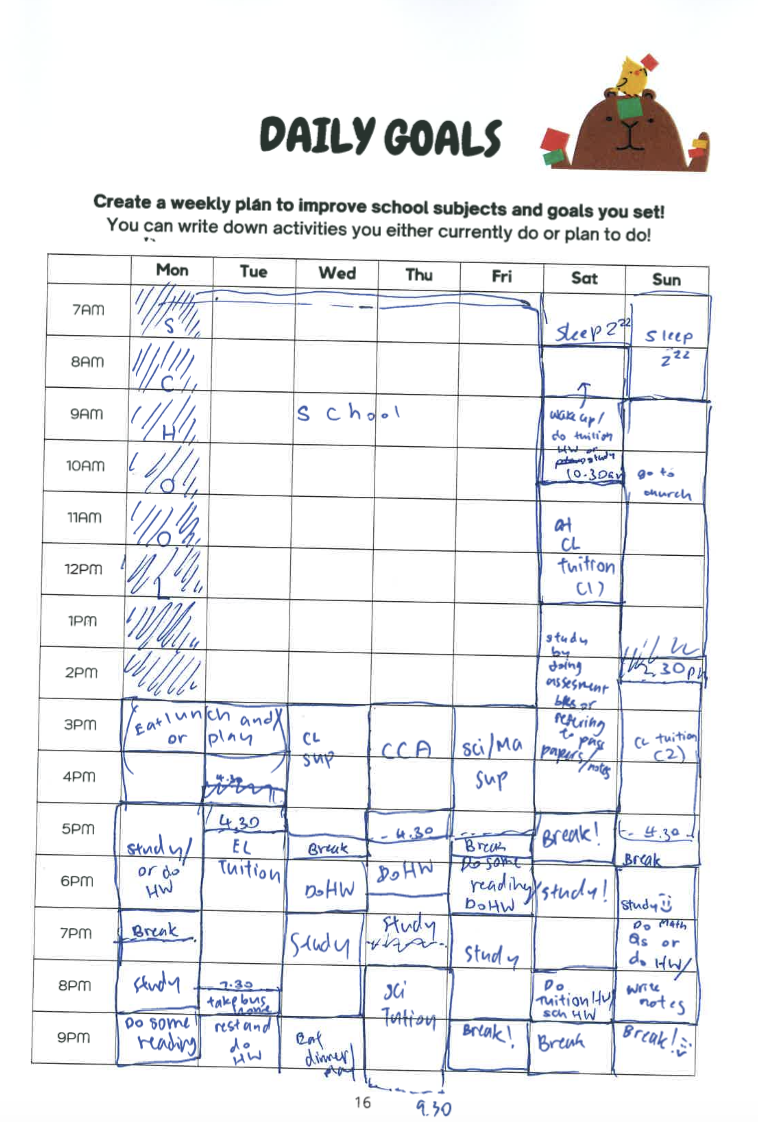 DAILY GOALS
Create a weekly plan to improve school subjects and goals you set!
You can write down activities you either currently do or plan to do!
Mon Tue Wed Thu Fri Sat Sun
7AM
8AM
9AM
10AM
11AM
12PM
1PM
2PM
3PM
4PM
5PM
6PM
7PM
8PM
9PM
S
C
H
O
O
L
Eat lunch and/
or play
Study/
or do
HW
Break
Study
Do some
reading
School
4.30
4.30
EL
Tuition
7.30
take bus
home
rest and
do
HW
CL
sup
Break
Do HW
Study
Eat
dinner/
play
CCA
- 4.30
Do HW
Study
Sci
Tution
9.30
sci/Ma
sup
Break
Do some
reading/
Do HW
Study
Break!
Sleep zzz
wake up/
do tuition
HW or
study
10.30am
at
CL
tuition
(1)
study
by
doing
assesment
bks or
refering
to pass
papers/notes
Break!
Study!
Do
Tuition HW/
sch HW
Break
Sleep
zzz
go to
church
2.30pm
CL tuition
(2)
- 4.30 -
Break
Study
Do Math
Qs or
do HW/
write
notes
Break!
16